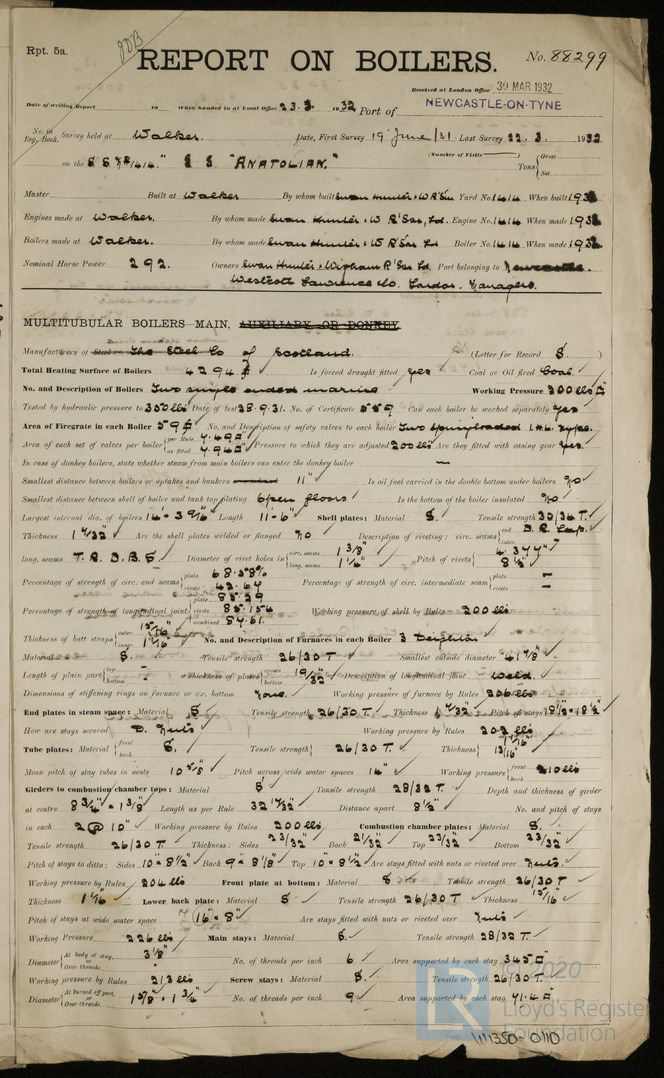 Rpt. 5a.
REPORT ON BOILERS.
No. 88299
Received at London Office 30 MAR 1932
Date of writing Report 19 When handed in at Local Office 23.3. 1932 Port of NEWCASTLE-ON-TYNE
No. in Reg. Book. Survey held at Walker. Date, First Survey 19 June /31 Last Survey 22.3. 1932
(Number of Visits )
on the S.S. "ANATOLIAN." Tons { Gross Net
Master Built at Walker By whom built Swan Hunter & W R'Son Yard No. 1414 When built 193
Engines made at Walker. By whom made Swan Hunter & W R'Son, Ld. Engine No. 1414 When made 193
Boilers made at Walker. By whom made Swan Hunter & W R'Son Ld Boiler No. 1414 When made 193
Nominal Horse Power 292. Owners Swan Hunter & Wigham R'Son Ld. Port belonging to Newcastle.
Westcott Laurence Co. London. Managers.
MULTITUBULAR BOILERS MAIN, AUXILIARY OR DONKEY.
Manufacturers of Steel The Steel Co of Scotland. (Letter for Record S. )
Total Heating Surface of Boilers 4294 Is forced draught fitted yes Coal or Oil fired Coal.
No. and Description of Boilers Two single ended marine Working Pressure 200 lbs
Tested by hydraulic pressure to 350 lbs Date of test 28.9.31. No. of Certificate 559 Can each boiler be worked separately yes
Area of Firegrate in each Boiler 59 No. and Description of safety valves to each boiler Two spring loaded I.H.L. type.
Area of each set of valves per boiler { per Rule 7.49 as fitted 7.94 Pressure to which they are adjusted 200 lbs Are they fitted with easing gear yes.
In case of donkey boilers, state whether steam from main boilers can enter the donkey boiler —
Smallest distance between boilers or uptakes and bunkers 11" Is oil fuel carried in the double bottom under boilers No
Smallest distance between shell of boiler and tank top plating Open floors Is the bottom of the boiler insulated No
Largest internal dia. of boilers 14'-3 9/16" Length 11'-6" Shell plates: Material S. Tensile strength 30/34 T.
Thickness 1 7/32" Are the shell plates welded or flanged No Description of riveting: circ. seams { end D.R. Lap. inter.
long. seams T.R.D.B.S. Diameter of rivet holes in { circ. seams 1 3/8" long. seams 1 1/4" Pitch of rivets { 4.377" 8 1/2"
Percentage of strength of circ. end seams { plate 68.58% rivets 42.67 Percentage of strength of circ. intermediate seam { plate — rivets —
Percentage of strength of longitudinal joint { plate 85.29 rivets 85.154 combined 87.61 Working pressure of shell by Rules 200 lbs
Thickness of butt straps { outer 15/16" inner 1 1/16" No. and Description of Furnaces in each Boiler 3 Deighton
Material S Tensile strength 26/30 T Smallest outside diameter 41 7/8"
Length of plain part { top — bottom — Thickness of plates { crown bottom 19/32" Description of longitudinal joint Weld.
Dimensions of stiffening rings on furnace or c.c. bottom None. Working pressure of furnace by Rules 206 lbs
End plates in steam space: Material S Tensile strength 26/30 T. Thickness 1 7/32" Pitch of stays 18 1/2" x 18 1/2"
How are stays secured D. Nuts Working pressure by Rules 202 lbs
Tube plates: Material { front back S. Tensile strength { 26/30 T. Thickness { 1 1/16" 13/16"
Mean pitch of stay tubes in nests 10 5/8" Pitch across wide water spaces 14" Working pressure { front back 210 lbs
Girders to combustion chamber tops: Material S Tensile strength 28/32 T. Depth and thickness of girder
at centre 8 3/4" x 1 3/8" Length as per Rule 32 17/32" Distance apart 8 1/2" No. and pitch of stays
in each 2 @ 10" Working pressure by Rules 200 lbs Combustion chamber plates: Material S.
Tensile strength 26/30 T Thickness: Sides 23/32" Back 21/32" Top 23/32" Bottom 23/32"
Pitch of stays to ditto: Sides 10" x 8 1/2" Back 9" x 8 1/8" Top 10" x 8 1/2" Are stays fitted with nuts or riveted over Nuts.
Working pressure by Rules 204 lbs Front plate at bottom: Material S Tensile strength 26/30 T
Thickness 1 1/16" Lower back plate: Material S Tensile strength 26/30 T Thickness 15/16"
Pitch of stays at wide water space 16" x 8" Are stays fitted with nuts or riveted over Nuts
Working Pressure 226 lbs Main stays: Material S. Tensile strength 28/32 T.
Diameter { At body of stay, or Over threads 3 1/8" No. of threads per inch 6 Area supported by each stay 345
Working pressure by Rules 213 lbs Screw stays: Material S. Tensile strength 26/30 T.
Diameter { At turned off part, or Over threads 1 5/8" x 1 3/4" No. of threads per inch 9 Area supported by each stay 71.4
© 2020
LR
Lloyd's Register
Foundation
1111350-0110